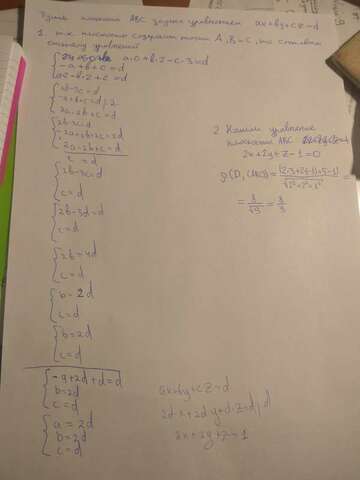 Пусть плоскость ABC задана уравнением ax+by+cz=d
1. т.к. плоскость содержит точки A, B и C, то составим
систему уравнений
a·0+b·2-c·3=d
-a+b+c=d
2a-b·2+c=d
2b-3c=d
-a+b+c=d |·2
2a-2b+c=d
2b-3c=d
-2a+2b+2c=2d
2a-2b+c=d
c=d
2b-3c=d
c=d
2b-3d=d
c=d
2b=4d
c=d
b=2d
c=d
b=2d
c=d
-a+2d+d=d
b=2d
c=d
a=2d
b=2d
c=d
2 Нашли уравнение
плоскости ABC
2x+2y+z-1=0
ρ(D, (ABC))=
=8/√9=8/3
ax+by+cz=d
2dx+2dy+dz=d |d
2x+2y+z=1